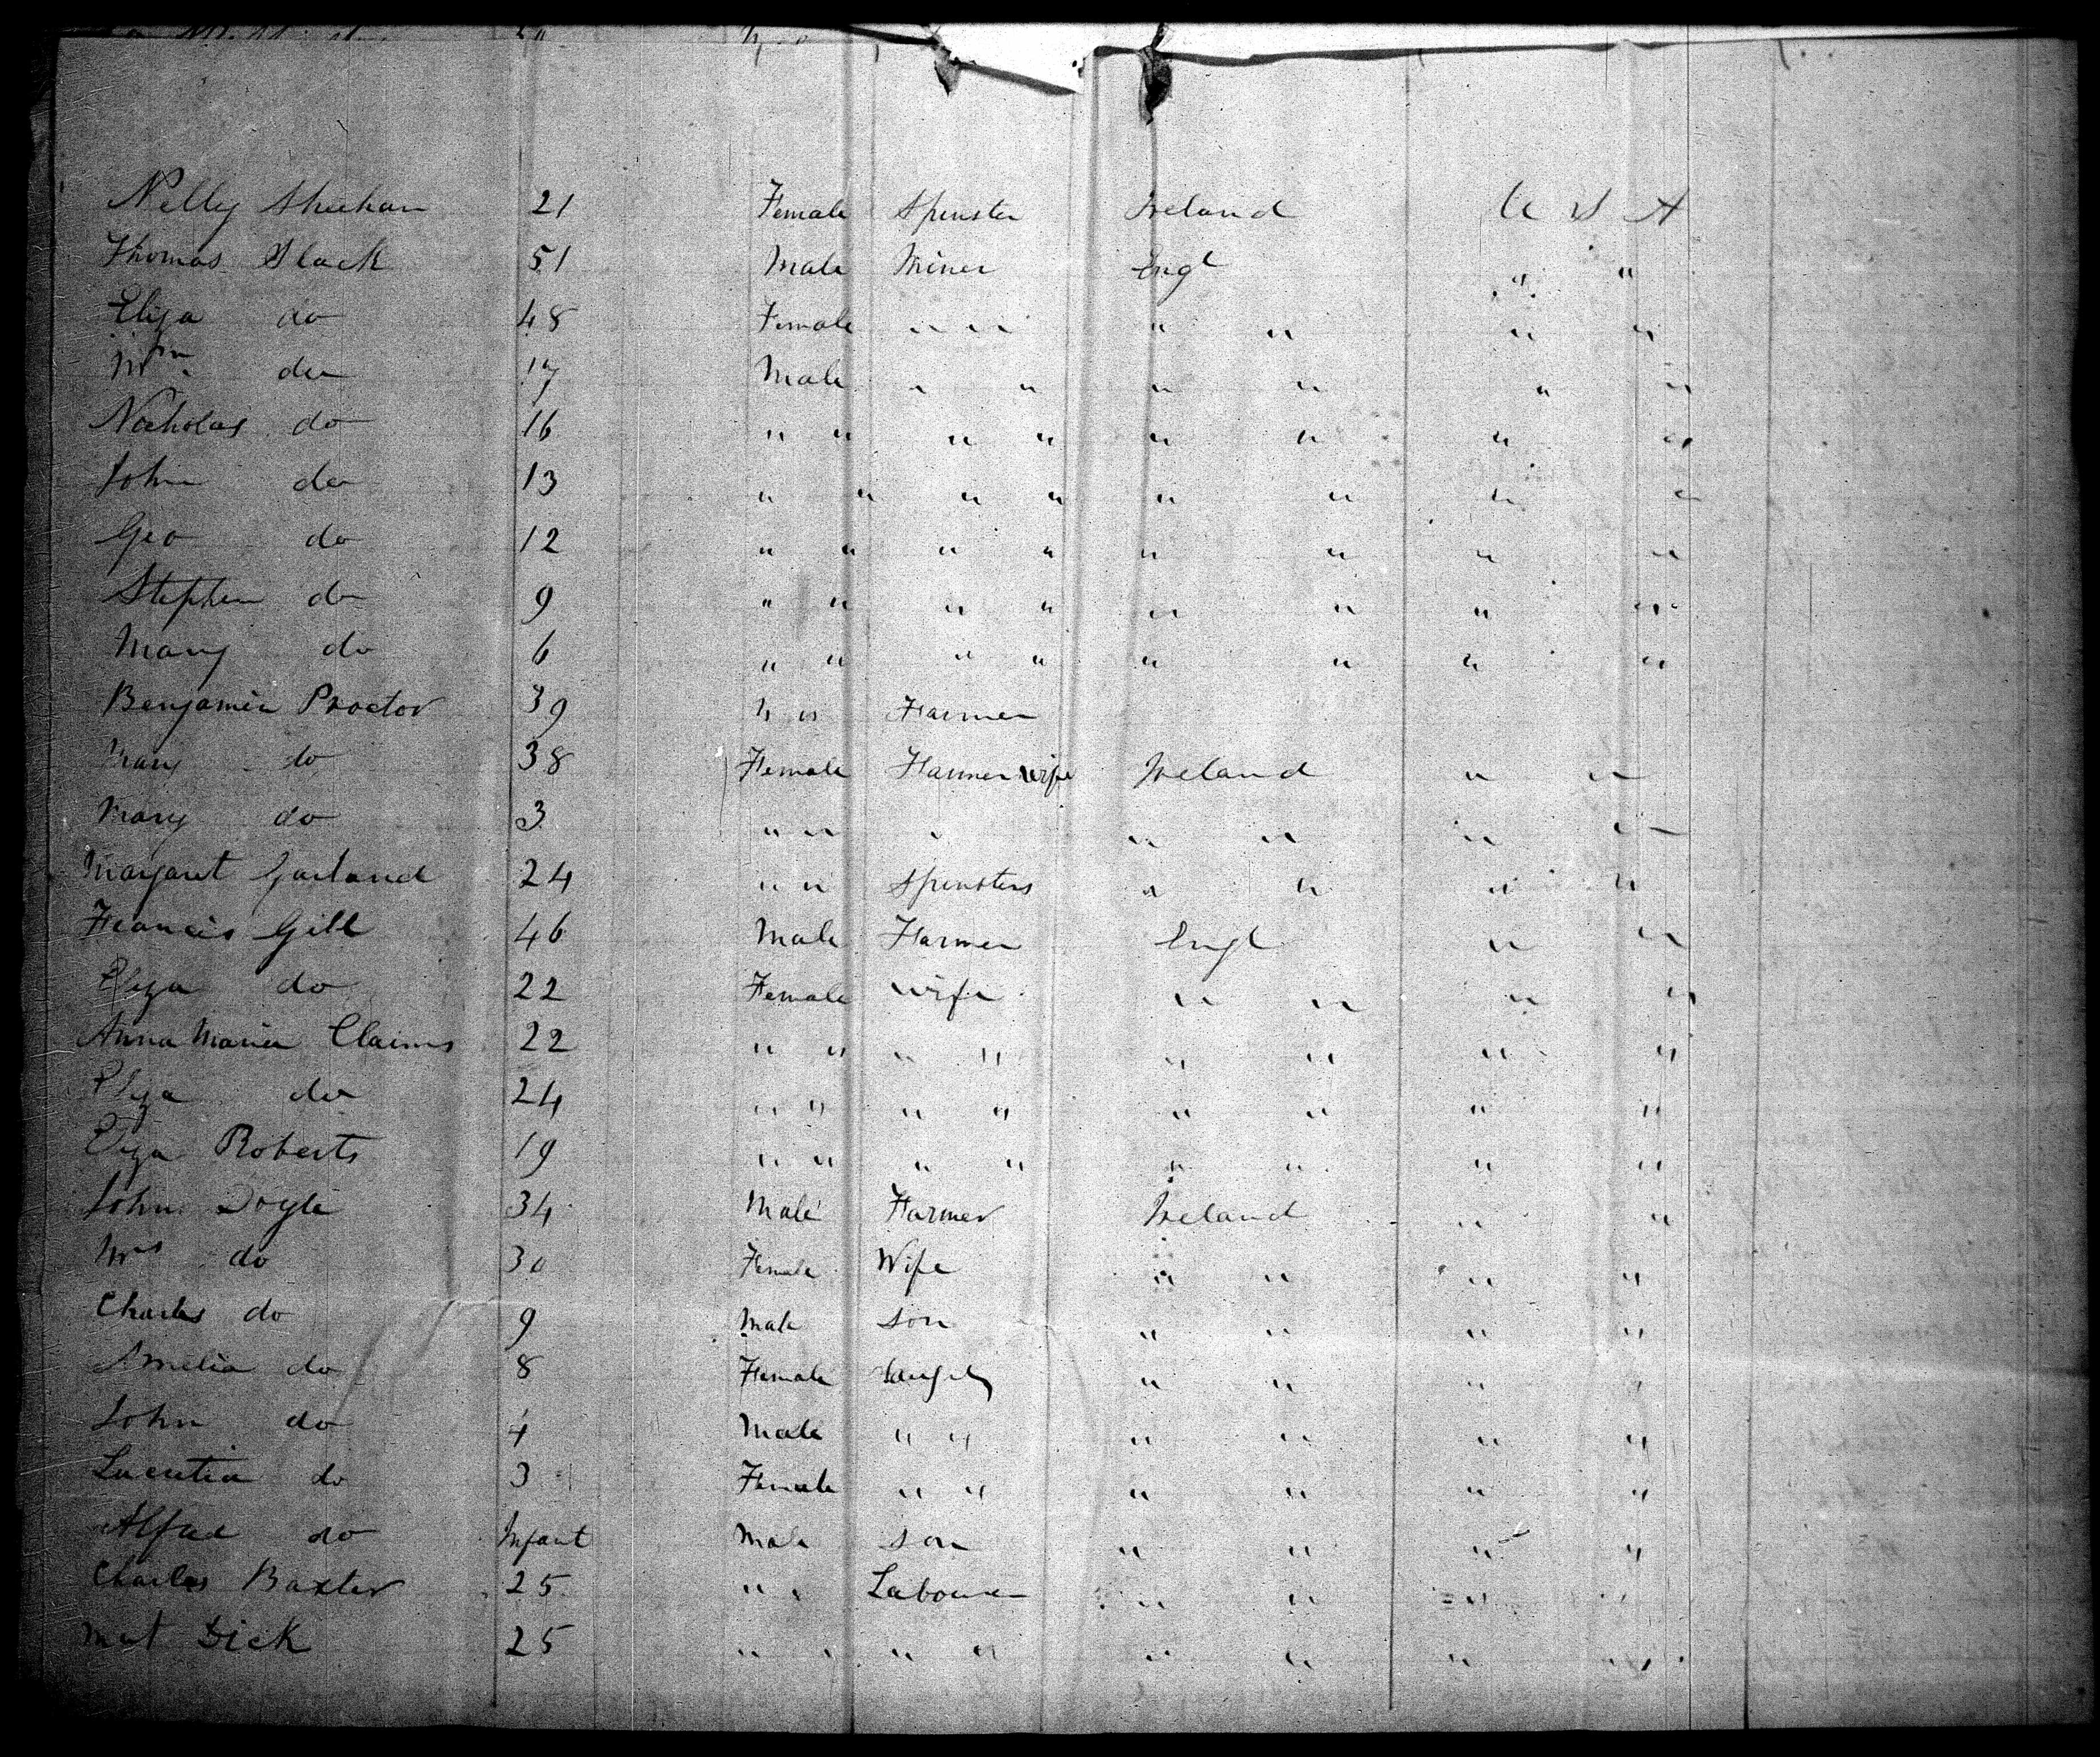 Nelly Sheehan 21 Female Spinster Ireland U S A
Thomas Slack 51 Male Miner Engl " "
Eliza do 48 Female " " " " " "
Wm do 17 Male " " " " " "
Nicholas do 16 " " " " " " " "
John do 13 " " " " " " " "
Geo do 12 " " " " " " " "
Stephen do 9 " " " " " " " "
Mary do 6 " " " " " " " "
Benjamin Proctor 39 " " Farmer
Mary do 38 Female Farmer wife Ireland " "
Mary do 3 " " " " " " "
Margaret Garland 24 " " Spinsters " " " "
Francis Gill 46 Male Farmer Engl " "
Eliza do 22 Female wife " " " "
Anna Maria Claims 22 " " " " " " " "
Eliza do 24 " " " " " " " "
Eliza Roberts 19 " " " " " " " "
John Doyle 34 Male Farmer Ireland " "
Mrs do 30 Female Wife " " " "
Charles do 9 Male Son " " " "
Amelia do 8 Female " " " "
John do 4 Male " " " " " "
Lucretia do 3 Female " " " " " "
Alfred do Infant Male son " " " "
Charles Baxter 25 " " Labourer " " " "
Mat Dick 25 " " " " " " " "